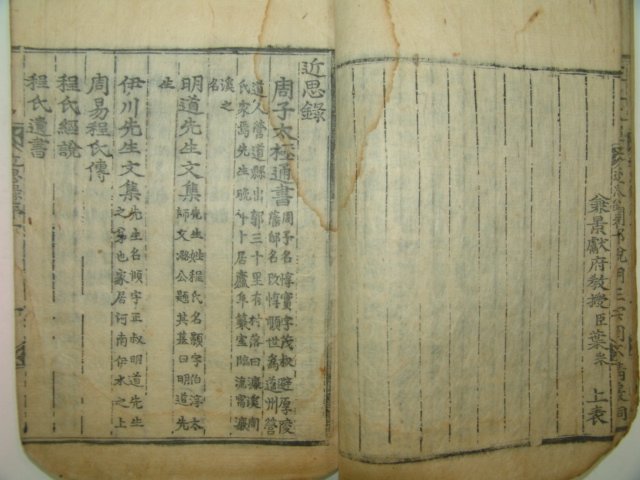 兼景獻府敎授臣葉采 上表
近思錄
周子太極通書 周子名惇實字茂叔避厚陵
藩邸名改惇頤世爲道州營
道人營道縣出郭三十里有村落曰濂溪周
氏家焉先生晚年卜居廬阜築室臨流寓濂
溪之
名
明道先生文集 先生姓程氏名顥字伯淳太
師文潞公題其墓曰明道先
生
伊川先生文集 先生名頤字正叔明道先生
之弟也家居河南伊水之上
周易程氏傳
程氏經說
程氏遺書